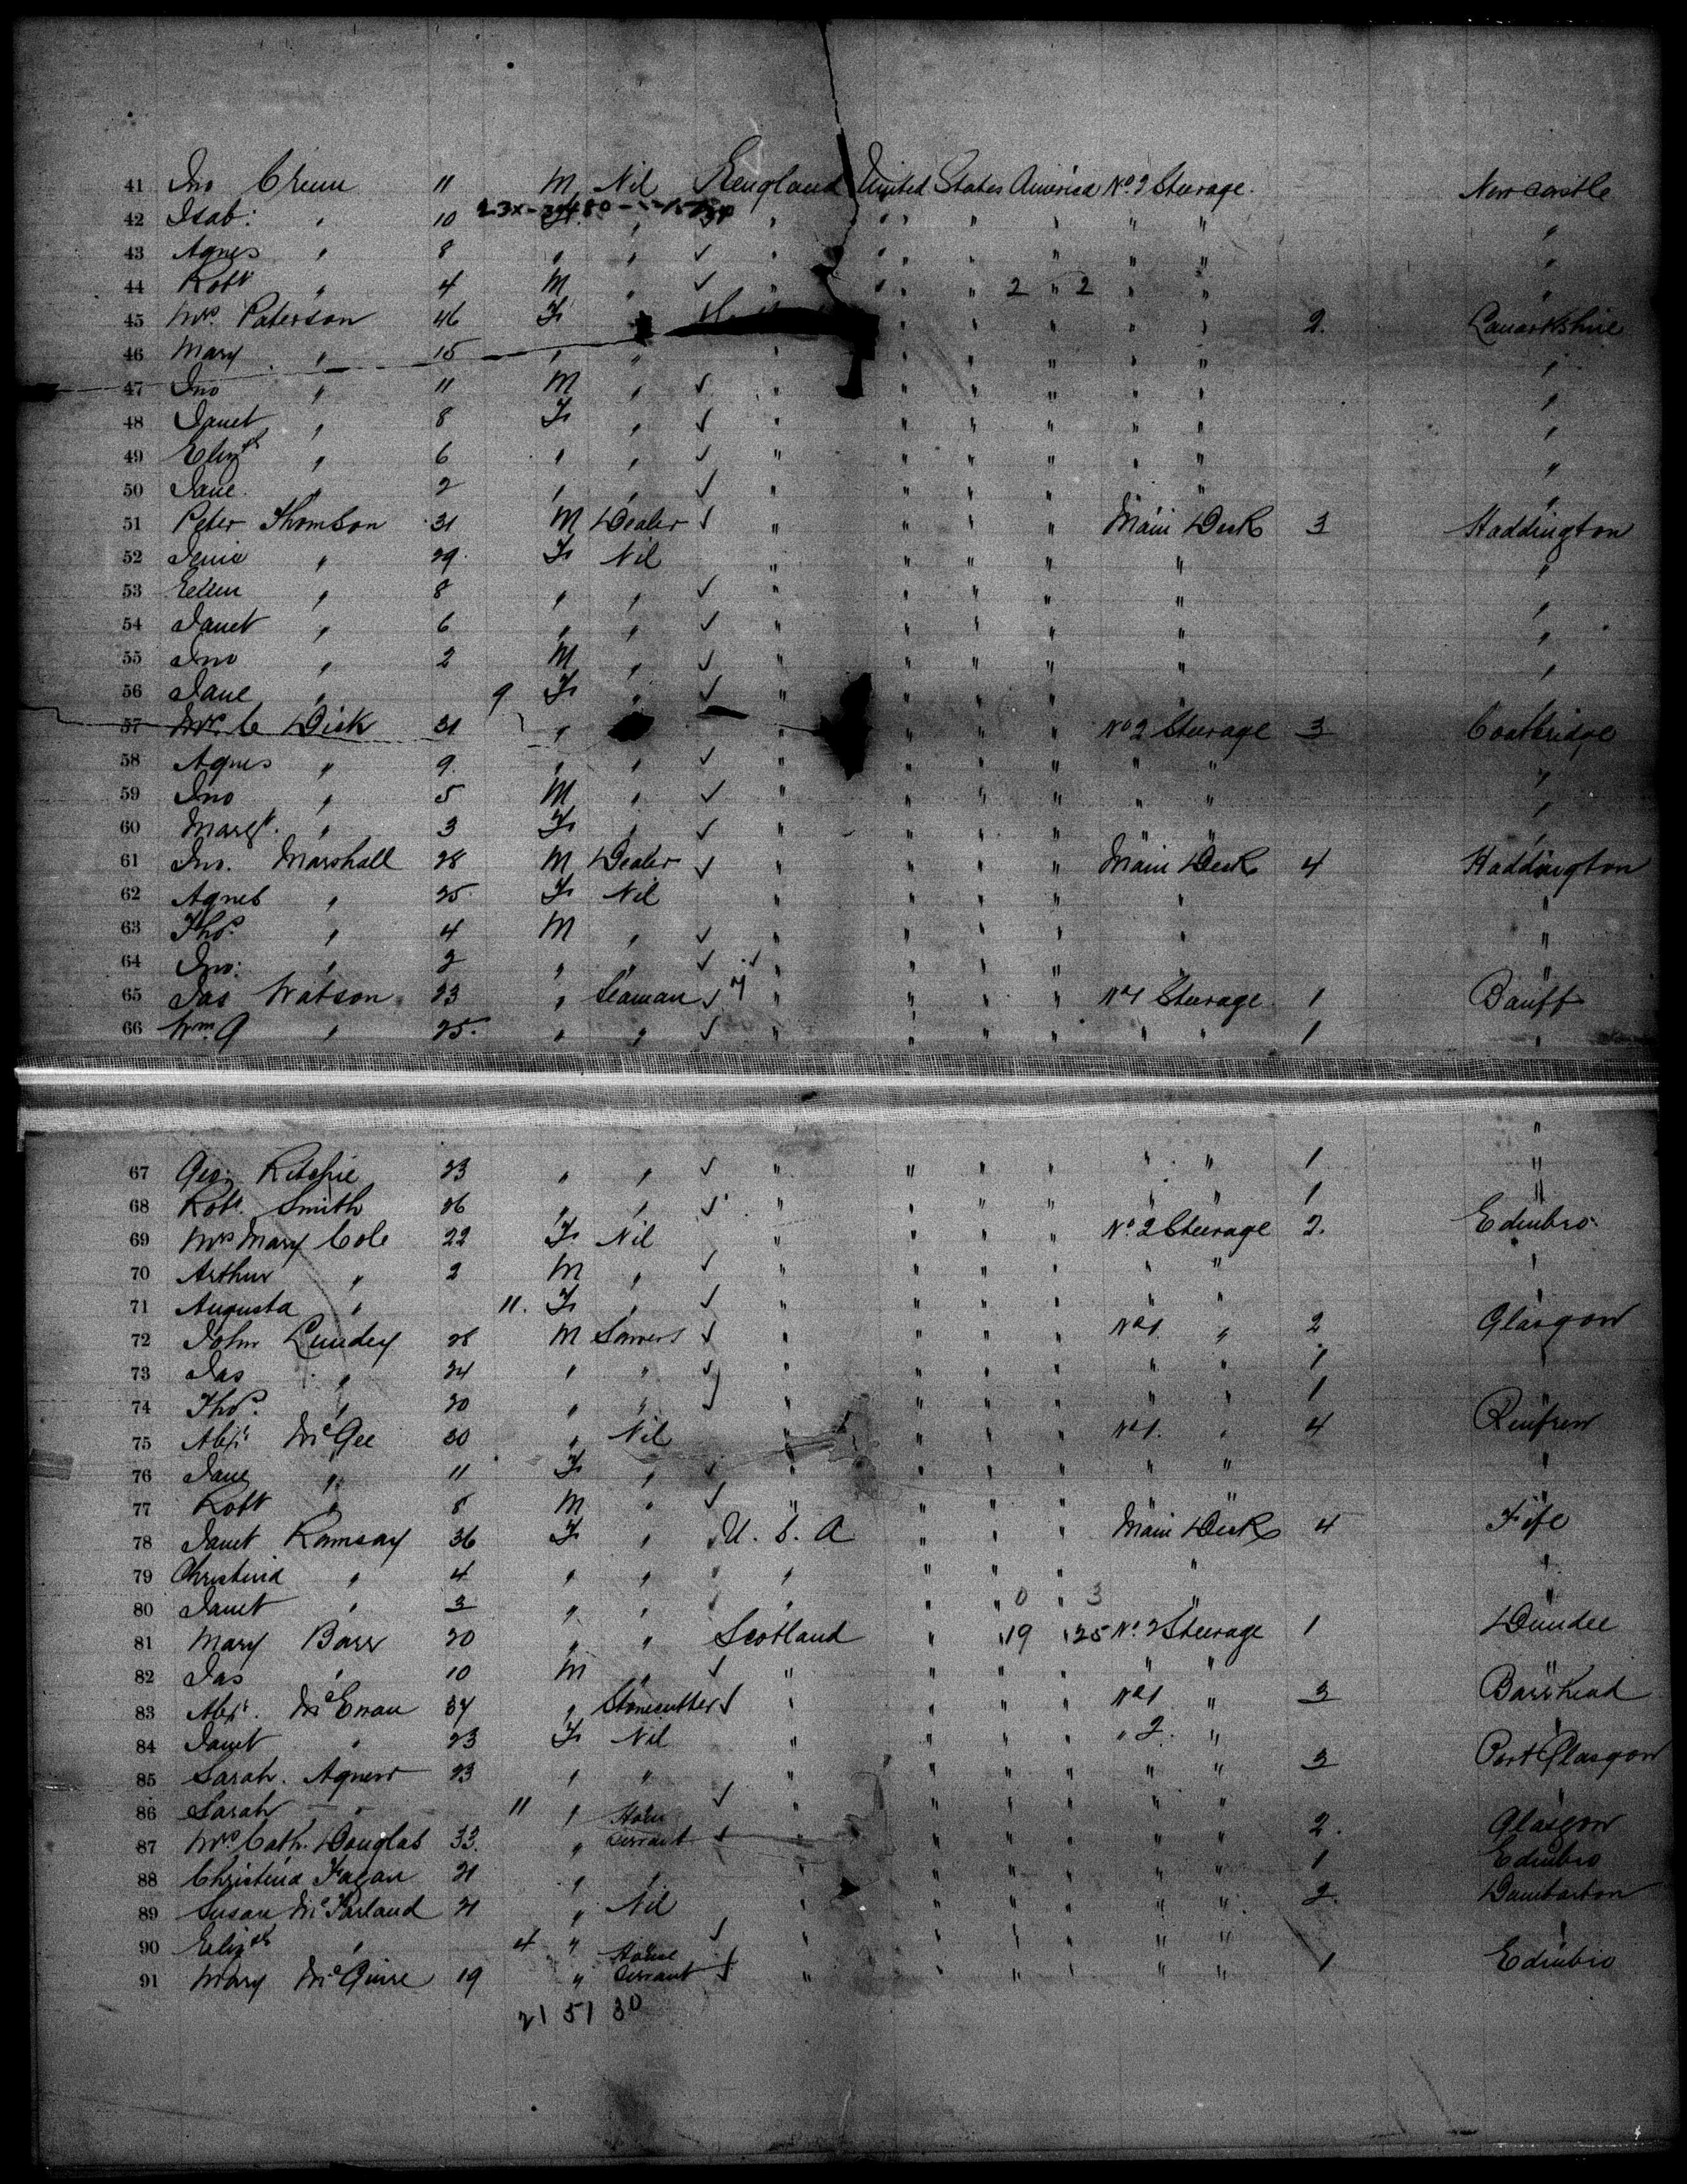 41 Jno Crum 11 M Nil England United States America No. 2 Steerage. Newcastle
42 Isab: " 10 F " " " " " " " "
43 Agnes " 8 " " ✓ " " " " " " "
44 Robt " 4 M " ✓ " " " 2 " 2 " " "
45 Mrs. Paterson 46 F " " " " " " 2. Lanarkshire
46 Mary " 15 " " " " " " " " "
47 Jno " 11 M " ✓ " " " " " " "
48 Janet " 8 F " ✓ " " " " " " "
49 Elizth " 6 " " ✓ " " " " " " "
50 Jane " 2 " " ✓ " " " " " "
51 Peter Thomson 31 M Dealer ✓ " " " " Main Deck 3 Haddington
52 Jenie " 29. F Nil " " " " " "
53 Ellen " 8 " " ✓ " " " " " "
54 Janet " 6 " " ✓ " " " " " "
55 Jno " 2 M " ✓ " " " " " "
56 Jane " 9 F " ✓ " " " " "
57 Mrs. C Dick 31 " " " " " No 2 Steerage 3 Coatbridge
58 Agnes " 9. " " ✓ " " " " " " "
59 Jno " 5 M " ✓ " " " " " " "
60 Margt. " 3 F " ✓ " " " " " " "
61 Jno. Marshall 28 M Dealer ✓ " " " " Main Deck 4 Haddington
62 Agnes " 25 F Nil " " " " " "
63 Thos. " 4 M " ✓ " " " " " "
64 Jno: " 2 " " ✓ " " " " " "
65 Jas Watson 23 " Seaman ✓ " " " " No 1 Steerage 1 Banff
66 Wm. A " 25. " " ✓ " " " " " " 1 "
67 Geo. Ritchie 23 " " ✓ " " " " " " 1 "
68 Robt. Smith 26 " " ✓ " " " " " " 1 "
69 Mrs Mary Cole 22 F Nil " " " " No. 2 Steerage 2. Edinbro.
70 Arthur " 2 M " ✓ " " " " " " "
71 Augusta " 11. F " ✓ " " " " " " "
72 John Lundey 28 M ✓ " " " " No 1 " 2 Glasgow
73 Jas " 24 " " ✓ " " " " " " 1 "
74 Thos. " 20 " " ✓ " " " " " " 1 "
75 Alexr McGee 30 " Nil " " " " No 1. " 4 Renfrew
76 Jane " 11 F " ✓ " " " " " " "
77 Robt " 8 M " ✓ " " " " " " "
78 Janet Ramsay 36 F " U. S. A " " " Main Deck 4 Fife
79 Christina " 4 " " " " " " " " "
80 Janet " 3 " " " " " " 0 " 3 " "
81 Mary Barr 20 " " Scotland " " 19 " 25 No. 2 Steerage 1 Dundee
82 Jas " 10 M " ✓ " " " " " " "
83 Alexr. McEwan 34 " Stonecutter ✓ " " " " No 1 " 3 Barrhead
84 Janet " 23 F Nil " " " " " 2. " "
85 Sarah. Agnew 23 " " " " " " " " 3 Port Glasgow
86 Sarah " 11 " ✓ " " " " " " "
87 Mrs. Cath. Douglas 33. " House Servant ✓ " " " " " " 2. Glasgow
88 Christina Fagan 21 " " " " " " " " 1 Edinbro
89 Susan McFarland 21 " Nil " " " " " " 2. Dumbarton
90 Elizth " 4 " ✓ " " " " " " "
91 Mary McGuire 19 " House Servant ✓ " " " " " 1 Edinbro
21 51 30